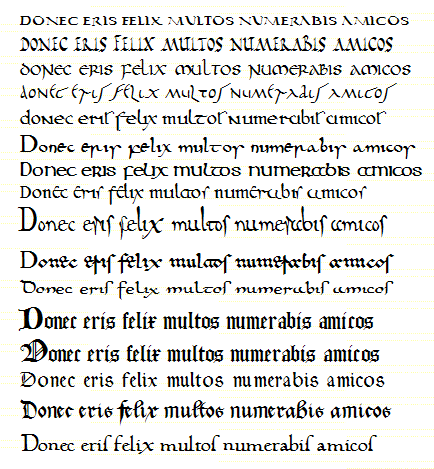 DONEC ERIS FELIX MULTOS NUMERABIS AMICOS
DONEC ERIS FELIX MULTOS NUMERABIS AMICOS
donec eris felix multos numerabis amicos
donec eriſ felix multoſ numerabiſ amicoſ
donec eriſ felix multoſ numerabiſ amicoſ
Donec eris felix multos numerabis amicos
Donec eris felix multos numerabis amicos
Donec eriſ felix multoſ numerabiſ amicoſ
Donec eriſ felix multoſ numerabiſ amicoſ
Donec eriſ felix multoſ numerabiſ amicoſ
Donec eriſ felix multoſ numerabiſ amicoſ
Donec eris felix multos numerabis amicos
Donec eris felix multos numerabis amicos
Donec eris felix multos numerabis amicos
Donec eris felix multos numerabis amicos
Donec eriſ felix multoſ numerabiſ amicoſ